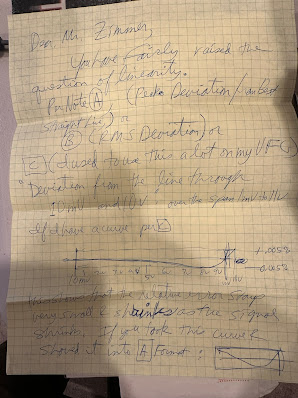 Dear Mr. Zimmer,
You have fairly raised the
question of linearity.
Per Note A, (Peak Deviation from Best
Straight Line) or
B (RMS Deviation) or
C (I used to use this a lot on my VFCs)
"Deviation from the line through
10 mV and 10V, over the span 1mV to 11V
If I have a curve per C
+.005%
0.005%
that the relative error stays
very small & shrinks as the signal
shrinks. If you took this curve
shoved it into A Format: